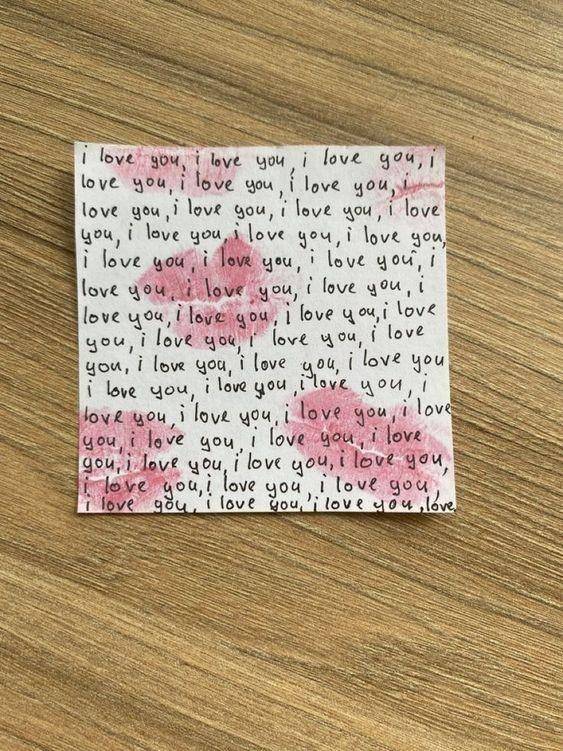 i love you, i love you, i love you, i
love you, i love you, i love you, i
love you, i love you, i love you, i love
you, i love you, i love you, i love you,
i love you, i love you, i love you, i
love you, i love you, i love you, i
love you, i love you, i love you, i love
you, i love you, i love you, i love
you, i love you, i love you, i love you
i love you, i love you, i love you, i
love you, i love you, i love you, i love
you, i love you, i love you, i love
you, i love you, i love you, i love you,
i love you, i love you, i love you,
i love you, i love you, i love you, love,